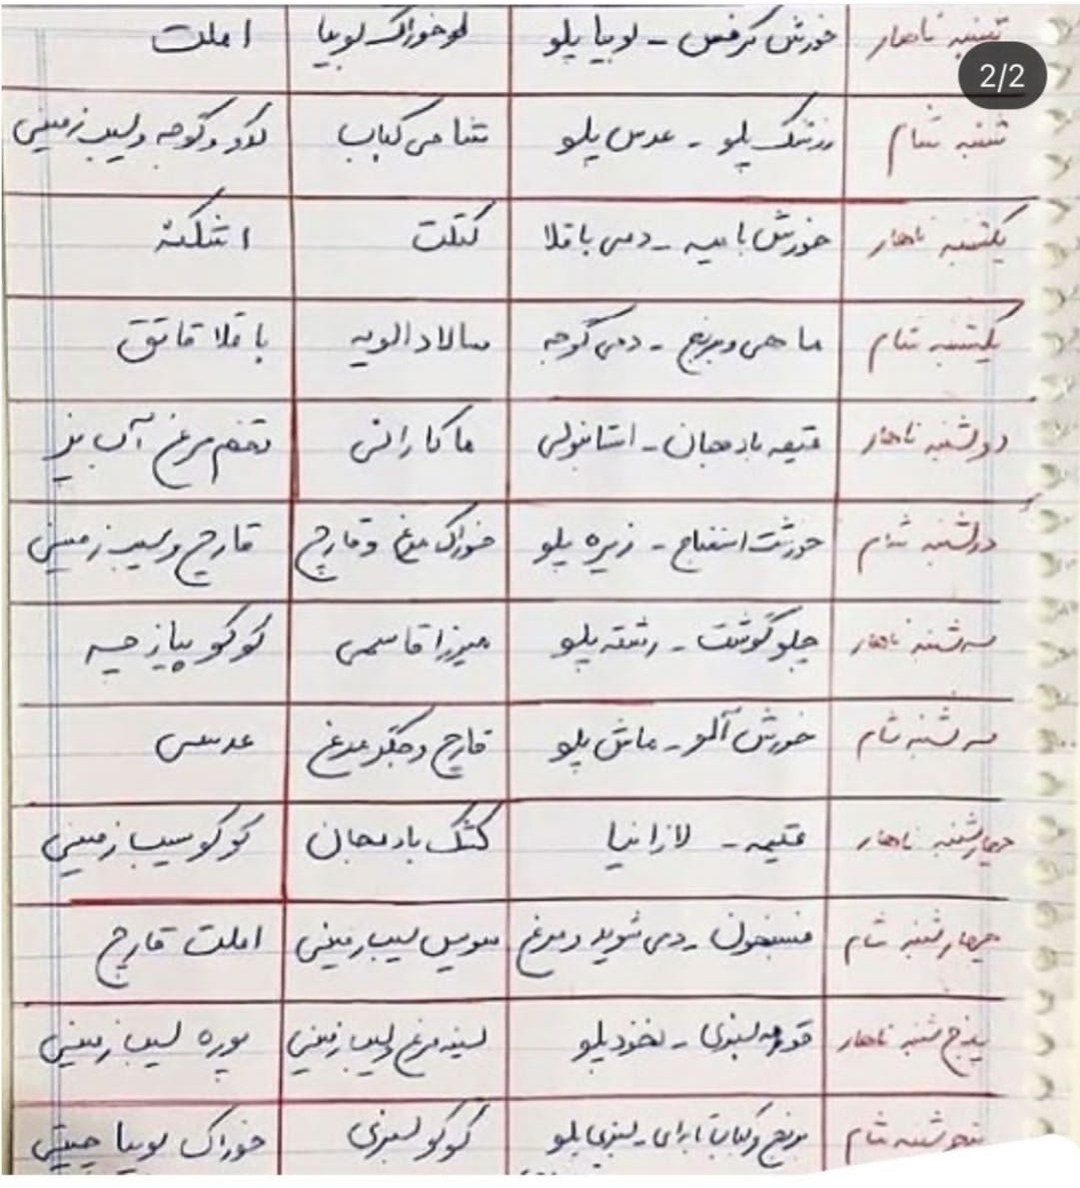 شنبه ناهار خورش کرفس - لوبیا پلو خوراک لوبیا املت
2/2
شنبه شام زرشک پلو - عدس پلو شامی کباب کدو و گوجه و سیب زمینی
یکشنبه ناهار خورش بامیه - دمی باقلا کتلت اشکنه
یکشنبه شام ماهی و برنج - دمی گوجه سالاد الویه باقلا قاتق
دوشنبه ناهار قیمه بادمجان - استانبولی ماکارانی تخم مرغ آب پز
دوشنبه شام خورشت اسفناج - زیره پلو خوراک مرغ و قارچ قارچ و سیب زمینی
سه شنبه ناهار چلو گوشت - رشته پلو میرزا قاسمی کوکو پیازچه
سه شنبه شام خورش آلو - ماش پلو قارچ و جگر مرغ عدسی
چهارشنبه ناهار قیمه - لازانیا کشک بادمجان کوکو سیب زمینی
چهارشنبه شام فسنجون - دمی شوید و مرغ سوسیس سیب زمینی املت قارچ
پنج شنبه ناهار قورمه سبزی - نخود پلو سینه مرغ و سیب زمینی پوره سیب زمینی
پنج شنبه شام برنج و کباب - سبزی پلو کوکو سبزی خوراک لوبیا چیتی